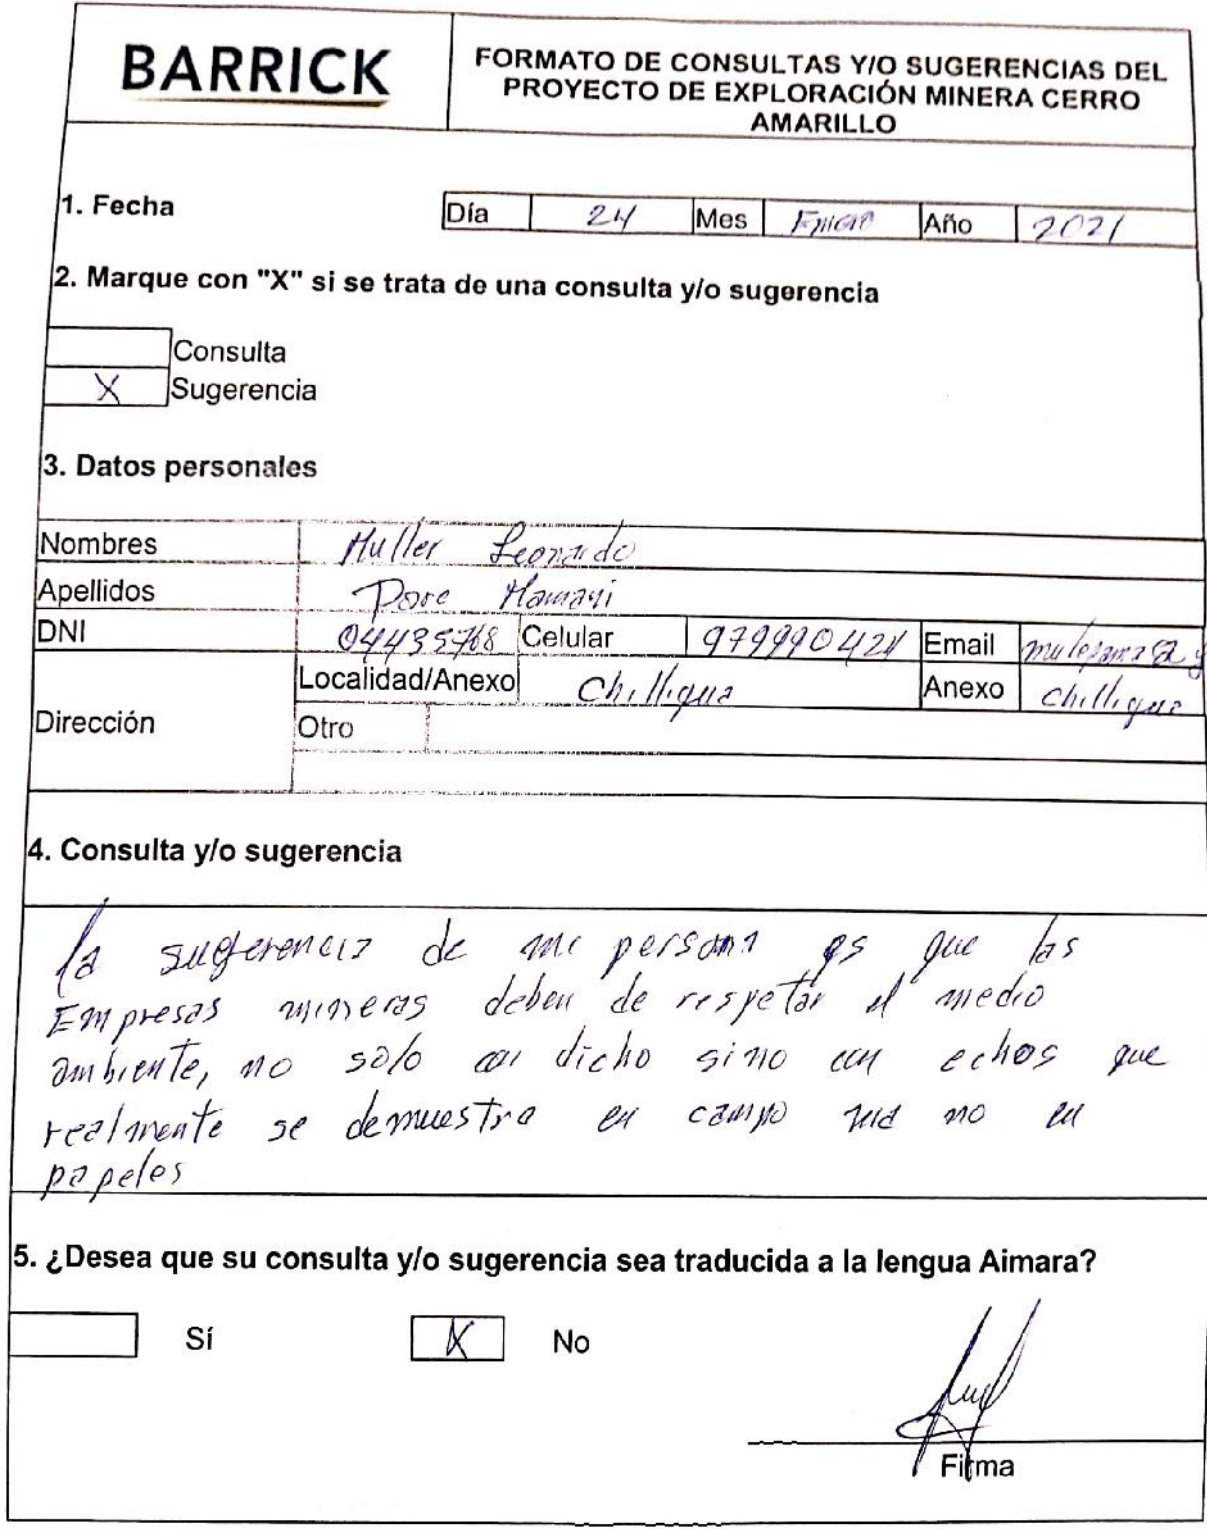 BARRICK
FORMATO DE CONSULTAS Y/O SUGERENCIAS DEL
PROYECTO DE EXPLORACIÓN MINERA CERRO
AMARILLO
1. Fecha
Día 24 Mes Enero Año 2021
2. Marque con "X" si se trata de una consulta y/o sugerencia
Consulta
X Sugerencia
3. Datos personales
Nombres Muller Leonardo
Apellidos Mamani
DNI 04435768 Celular 979990424 Email
Localidad/Anexo Chilligua Anexo Chilligua
Dirección
Otro
4. Consulta y/o sugerencia
la sugerencia de mi persona es que las
Empresas mineras deben de respetar el medio
ambiente, no solo con dicho sino con echos que
realmente se demuestra en campo no en
papeles
5. ¿Desea que su consulta y/o sugerencia sea traducida a la lengua Aimara?
Sí X No
Firma